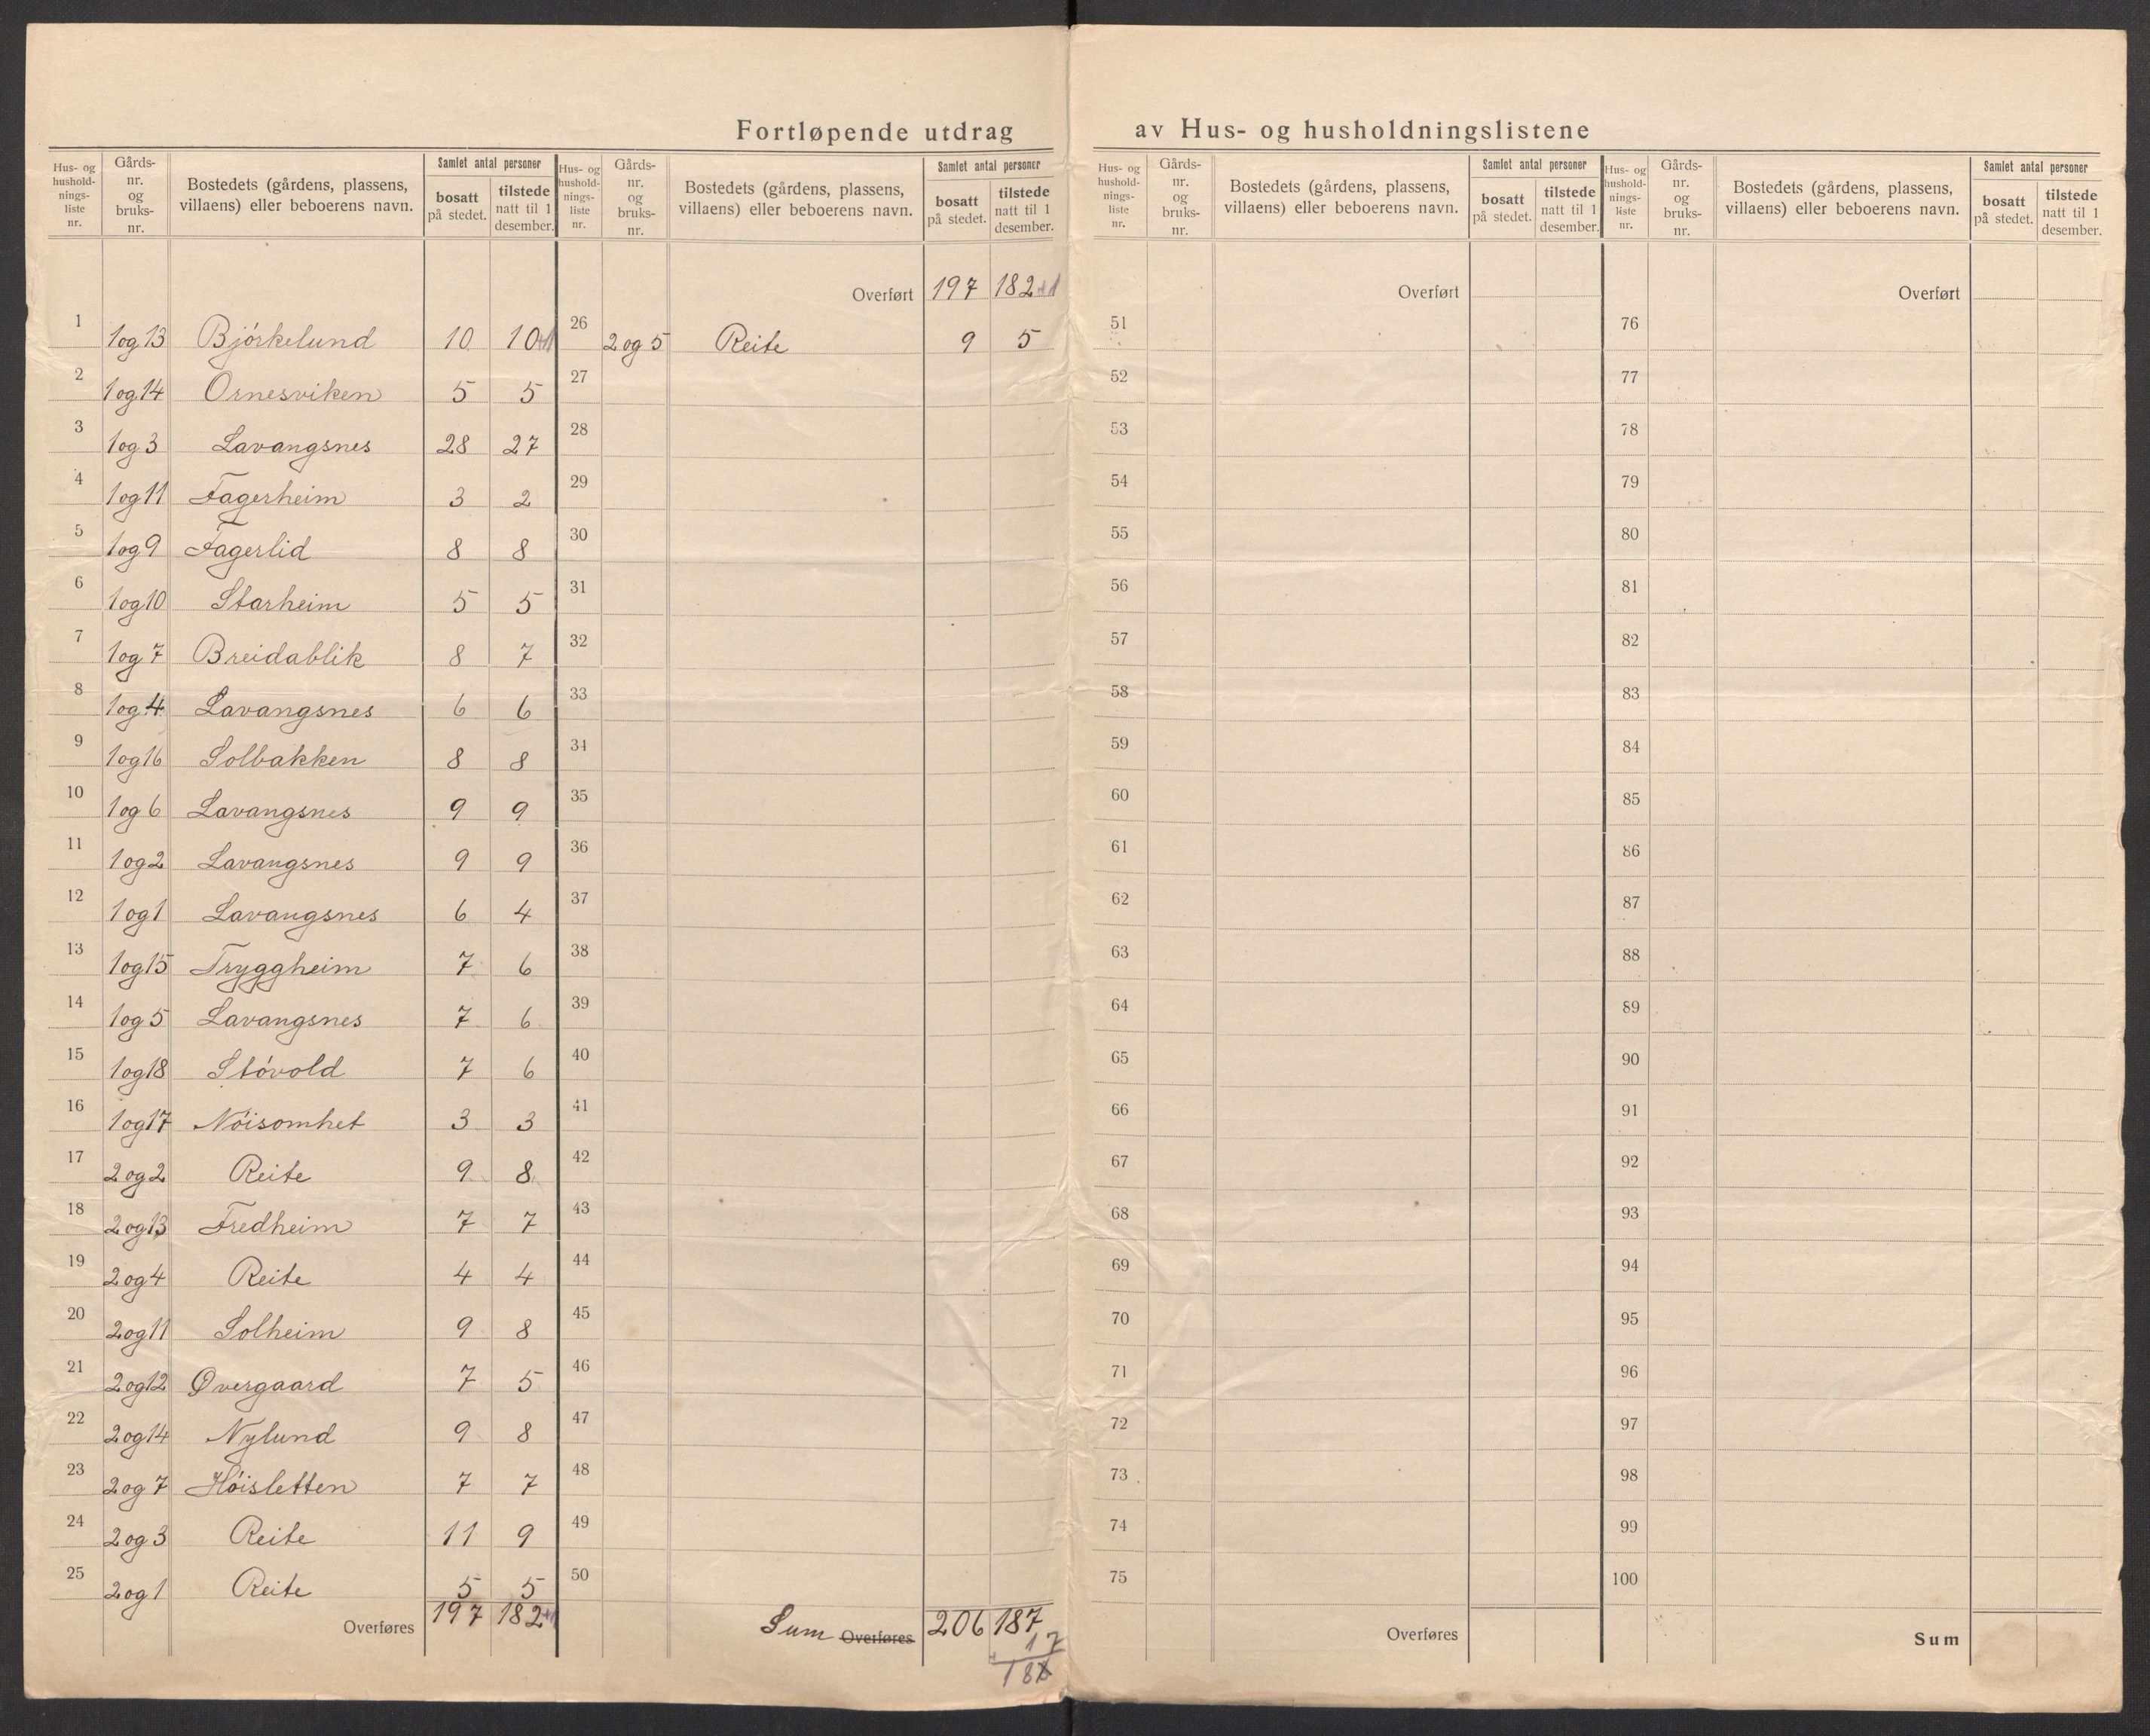 Fortløpende utdrag av Hus- og husholdningslistene
Hus- og hushold-nings-liste nr. | Gårds-nr. og bruks-nr. | Bostedets (gårdens, plassens, villaens) eller beboerens navn. | Samlet antal personer | bosatt på stedet. | tilstede natt til 1 desember.
1 | 1 og 13 | Bjórkelund | 10 | 10+1
2 | 1 og 14 | Ornesviken | 5 | 5
3 | 1 og 3 | Lavangsnes | 28 | 27
4 | 1 og 11 | Fagerheim | 3 | 2
5 | 1 og 9 | Fagerlid | 8 | 8
6 | 1 og 10 | Starheim | 5 | 5
7 | 1 og 7 | Breidablik | 8 | 7
8 | 1 og 4 | Lavangsnes | 6 | 6
9 | 1 og 16 | Solbakken | 8 | 8
10 | 1 og 6 | Lavangsnes | 9 | 9
11 | 1 og 2 | Lavangsnes | 9 | 9
12 | 1 og 1 | Lavangsnes | 6 | 4
13 | 1 og 15 | Tryggheim | 7 | 6
14 | 1 og 5 | Lavangsnes | 7 | 6
15 | 1 og 18 | Stóvold | 7 | 6
16 | 1 og 17 | Nóisomhet | 3 | 3
17 | 2 og 2 | Reite | 9 | 8
18 | 2 og 13 | Fredheim | 7 | 7
19 | 2 og 4 | Reite | 4 | 4
20 | 2 og 11 | Solheim | 9 | 8
21 | 2 og 12 | Øvergaard | 7 | 5
22 | 2 og 14 | Nylund | 9 | 8
23 | 2 og 7 | Hóisletten | 7 | 7
24 | 2 og 3 | Reite | 11 | 9
25 | 2 og 1 | Reite | 5 | 5
Overføres | 197 | 182+1
Hus- og hushold-nings-liste nr. | Gårds-nr. og bruks-nr. | Bostedets (gårdens, plassens, villaens) eller beboerens navn. | Samlet antal personer | bosatt på stedet. | tilstede natt til 1 desember.
Overført | 197 | 182+1
26 | 2 og 5 | Reite | 9 | 5
27
28
29
30
31
32
33
34
35
36
37
38
39
40
41
42
43
44
45
46
47
48
49
50
Sum Overføres | 206 | 187
Hus- og hushold-nings-liste nr. | Gårds-nr. og bruks-nr. | Bostedets (gårdens, plassens, villaens) eller beboerens navn. | Samlet antal personer | bosatt på stedet. | tilstede natt til 1 desember.
Overført
51
52
53
54
55
56
57
58
59
60
61
62
63
64
65
66
67
68
69
70
71
72
73
74
75
Overføres
Hus- og hushold-nings-liste nr. | Gårds-nr. og bruks-nr. | Bostedets (gårdens, plassens, villaens) eller beboerens navn. | Samlet antal personer | bosatt på stedet. | tilstede natt til 1 desember.
Overført
76
77
78
79
80
81
82
83
84
85
86
87
88
89
90
91
92
93
94
95
96
97
98
99
100
Sum